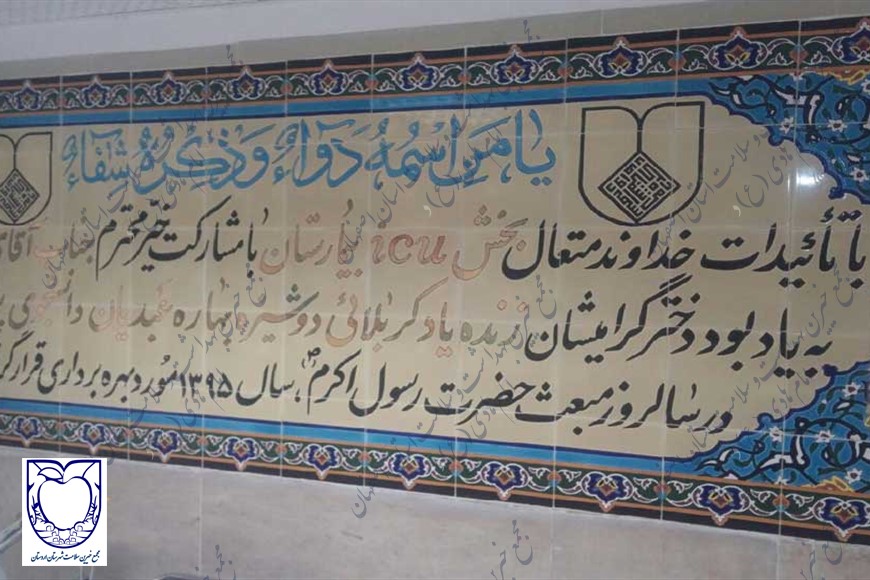 یا مَن اسْمُهُ دَوآءٌ وَ ذِکْرُهُ شِفآءٌ
با تأئیدات خداوند متعال بخش icu بیمارستان با مشارکت خیّر محترم جناب آقای
به یادبود دختر گرامیشان زنده یاد کربلائی دوشیزه بهاره عبدیان دانشجوی
در سالروز مبعث حضرت رسول اکرم (ص)، سال ۱۳۹۵ مورد بهره برداری قرار
مجمع خیرین سلامت شهرستان اردستان